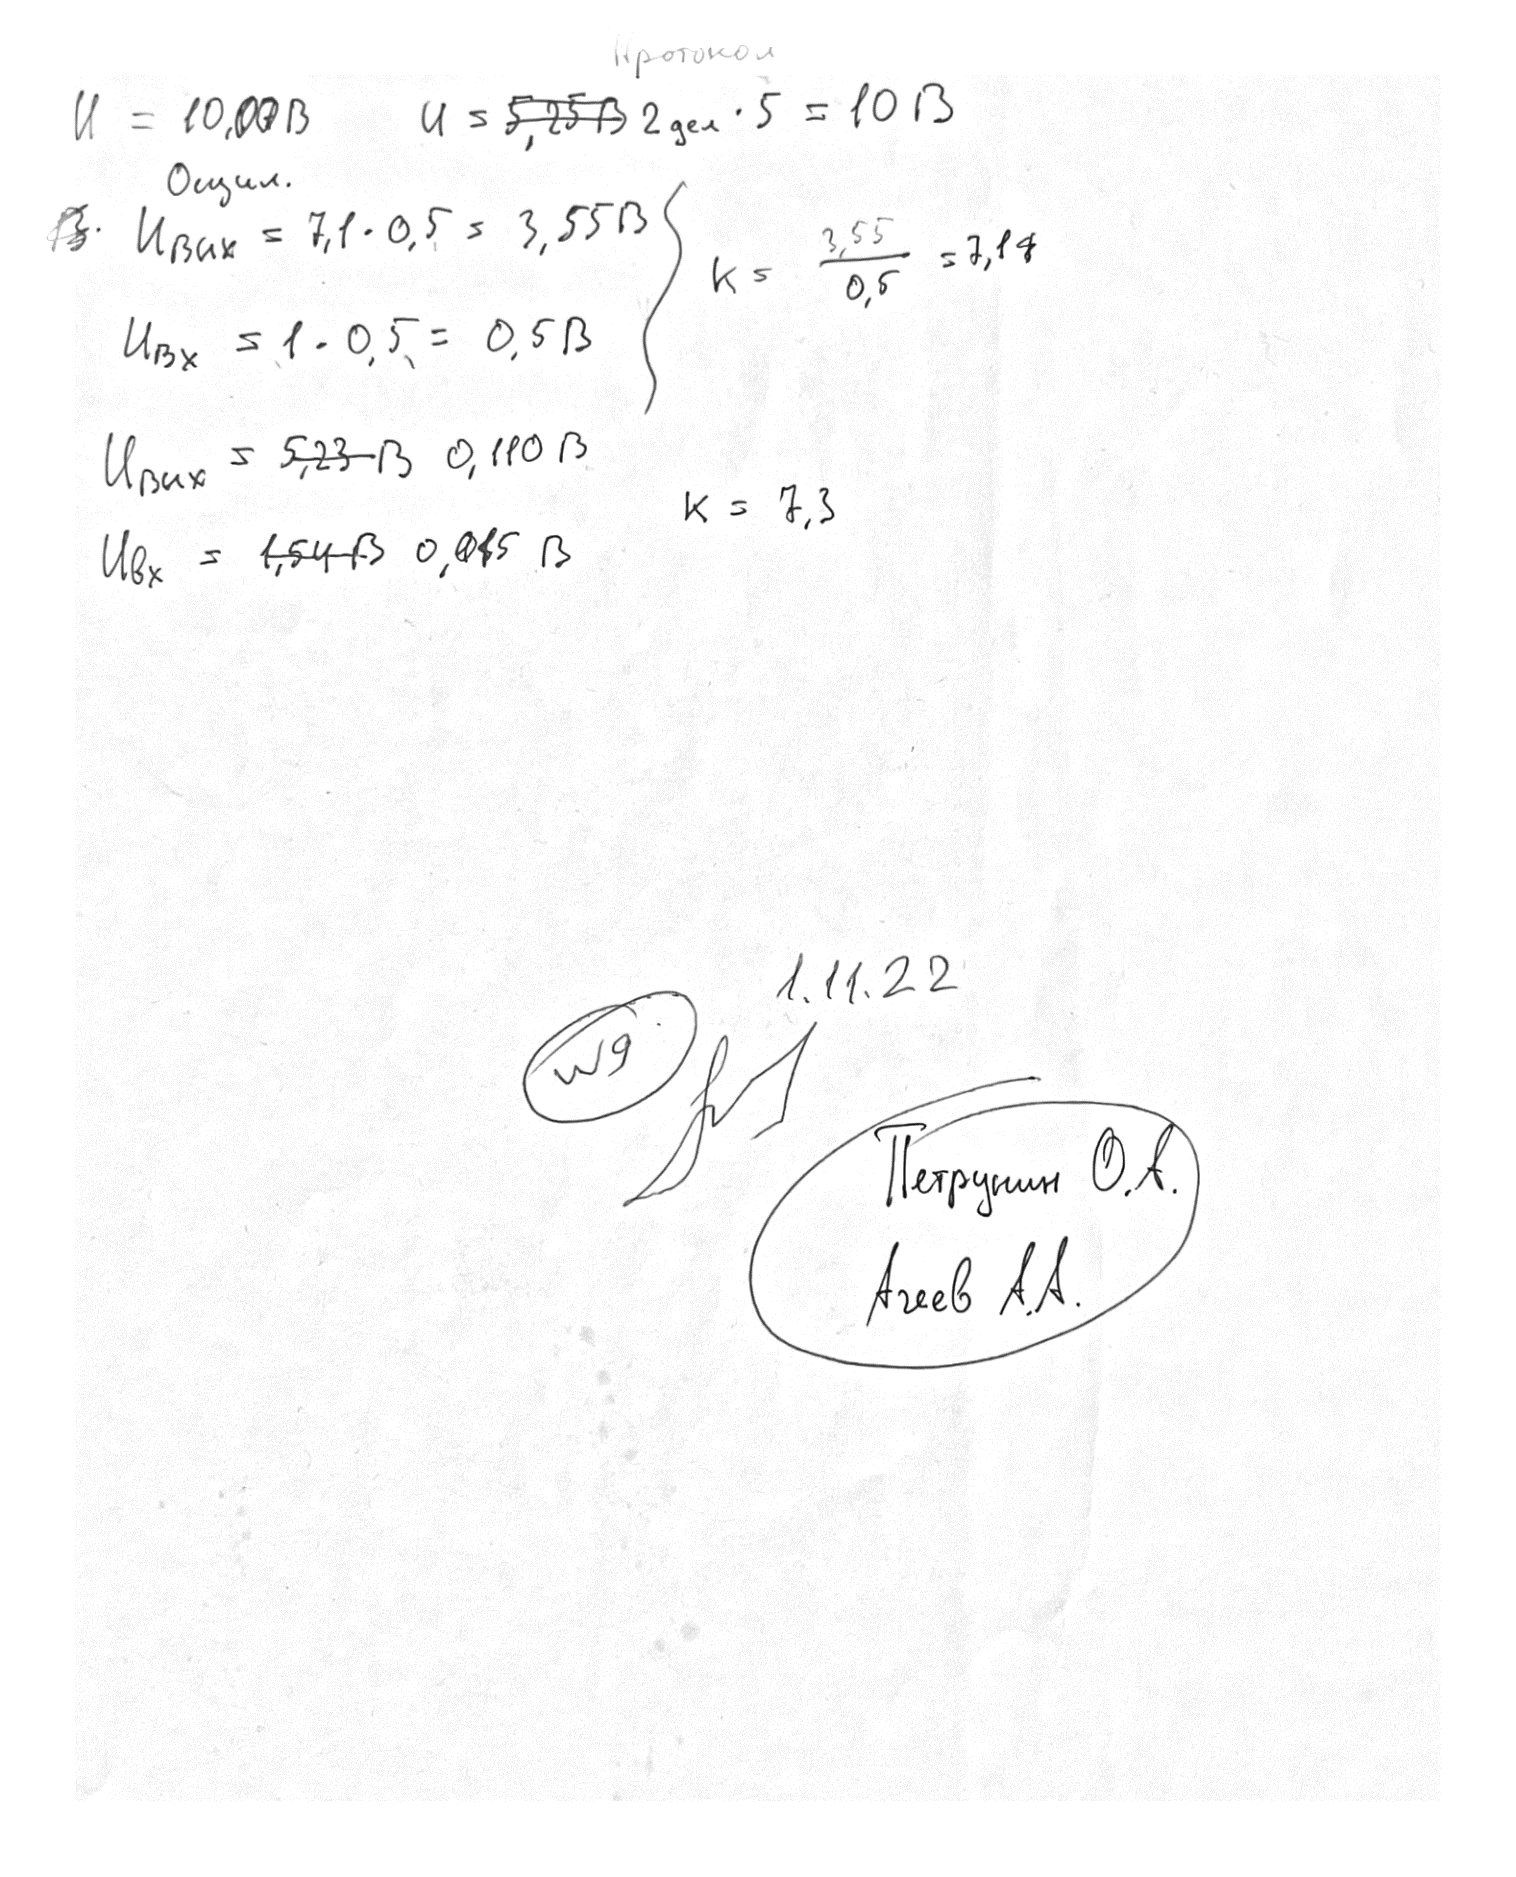 Протокол
U = 10,00 В U = 5,25 В 2 дел · 5 = 10 В
Осцил.
Uвых = 7,1 · 0,5 = 3,55 В
K = 3,55 / 0,5 = 7,1
Uвх = 1 · 0,5 = 0,5 В
Uвых = 5,23 В 0,110 В
K = 7,3
Uвх = 1,54 В 0,015 В
1.11.22
W9
Петрунин О.А.
Агеев А.А.